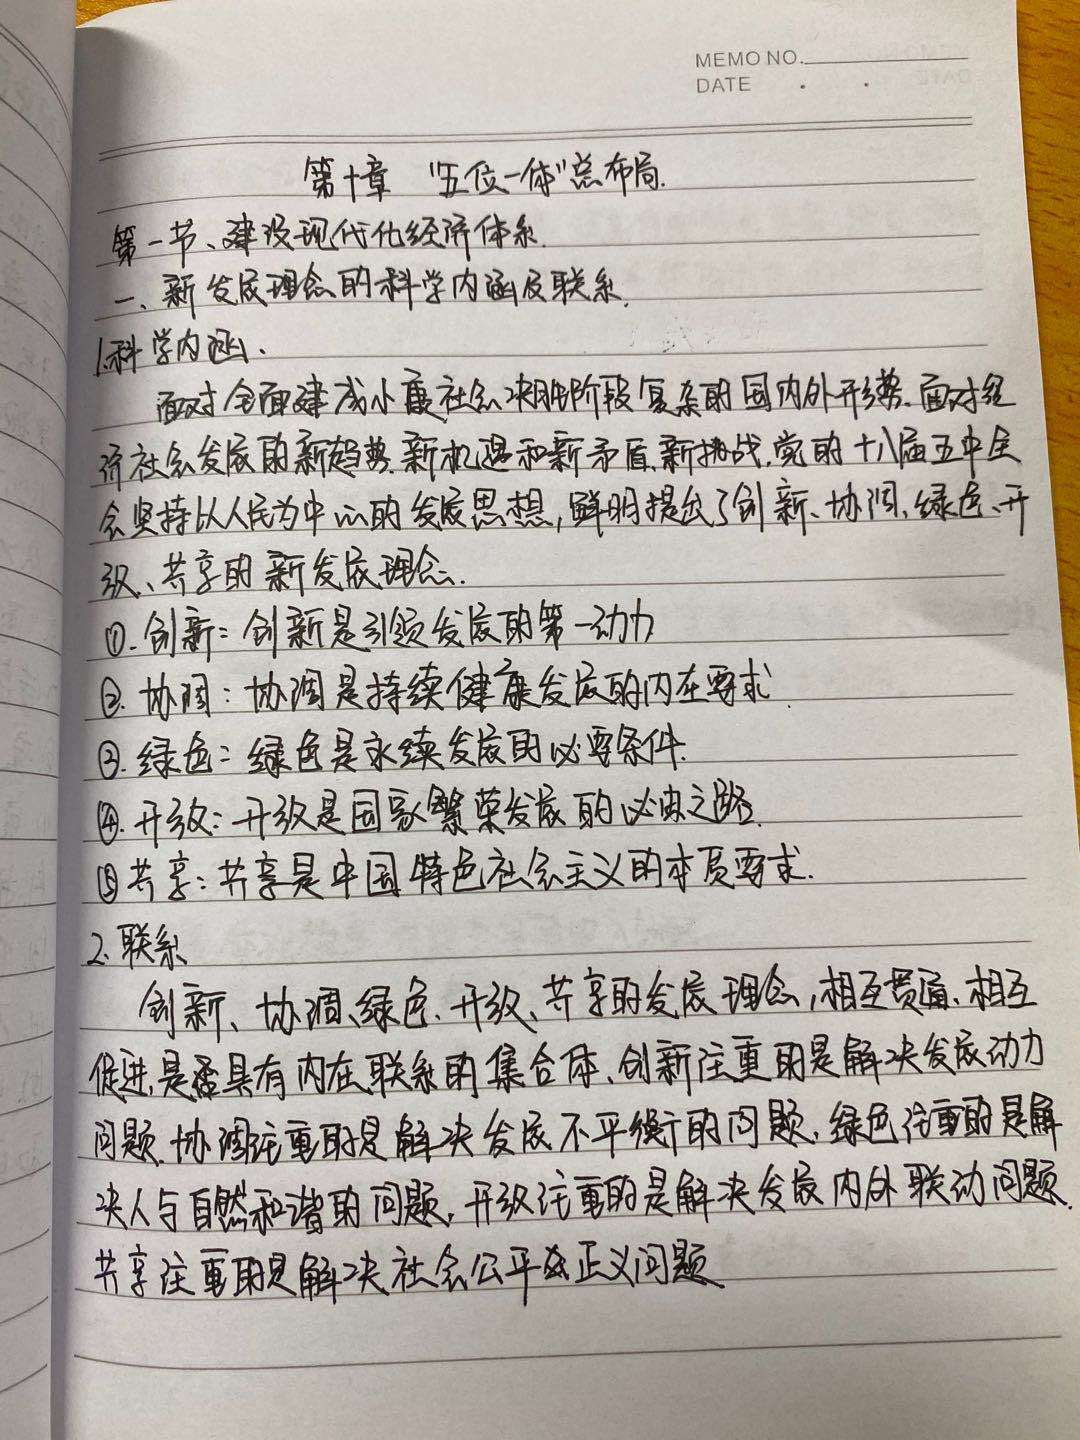 MEMO NO.
DATE . .
第十章 "五位一体"总布局.
第一节、建设现代化经济体系.
一、新发展理念的科学内涵及联系.
1.科学内涵.
面对全面建成小康社会决胜阶段复杂的国内外形势、面对经
济社会发展的新趋势、新机遇和新矛盾、新挑战,党的十八届五中全
会坚持以人民为中心的发展思想,鲜明提出了创新、协调、绿色、开
放、共享的新发展理念.
①.创新:创新是引领发展的第一动力
②.协调:协调是持续健康发展的内在要求.
③.绿色:绿色是永续发展的必要条件.
④.开放:开放是国家繁荣发展的必由之路.
⑤共享:共享是中国特色社会主义的本质要求.
2.联系
创新、协调、绿色、开放、共享的发展理念,相互贯通、相互
促进,是具有内在联系的集合体、创新注重的是解决发展动力
问题.协调注重的是解决发展不平衡的问题,绿色注重的是解
决人与自然和谐的问题,开放注重的是解决发展内外联动问题.
共享注重的是解决社会公平正义问题